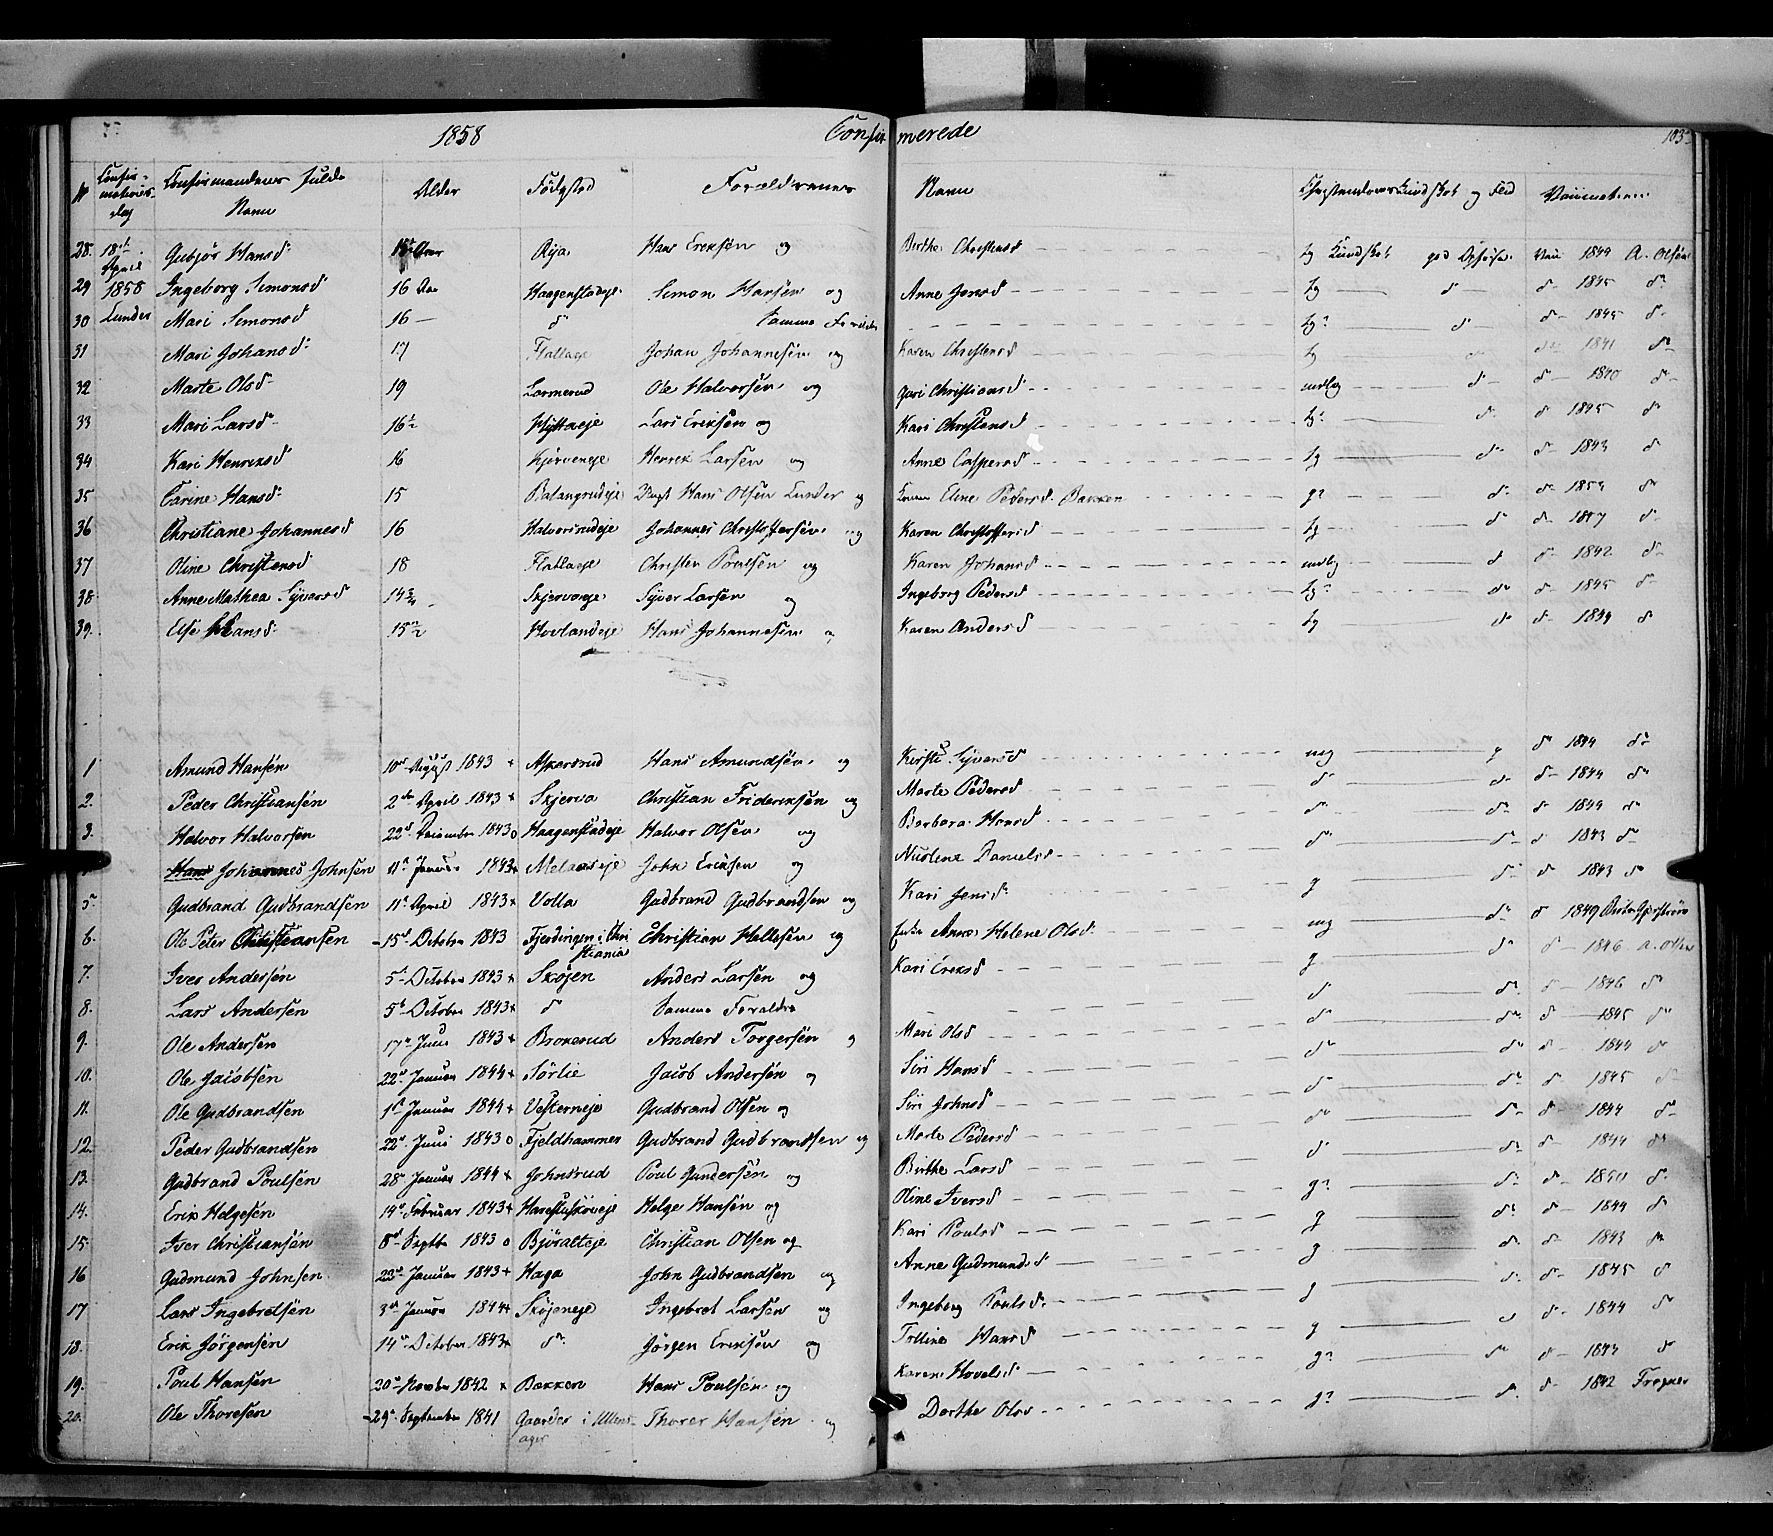 1858 Confirmerede 103
No Confirmations-dag Confirmandens fulde Navn Alder Födested Forældrenes Navn Christendoms Kundskab og Flid Vaccinationen
28. 18de April Gubjör Hansd. Aar Rya Hans Eriksen og Berthe Christensd Kundskab god Opförsel Vac 1844 A. Olsen
29 1858 Ingeborg Simonsd. 16 Aar Haagenstadeje Simon Hansen og Anne Jensd d 1845 d
30 Lunder Mari Simonsd 16 d Samme Forældre d d 1845 d
31 Mari Johansd. 17 Flatlaeje Johan Johannesen og Karen Christensd d 1841 d
32 Marte Olsd 19 Larmerud Ole Halvorsen og Guri Christiansd. mdlg d d 1840 d
33 Mari Larsd 16½ Hyttaeje Lars Eriksen og Kari Christensd d d 1845 d
34 Kari Henriksd 16 Kjörveneje Henrik Larsen og Anne Caspersd d d 1843 d
35 Carine Hansd. 15 Hans Olsen Lunder og Eline Pedersd. Bakken d d d
36 Christiane Johannesd 16 Halvorsrudeje Johannes Christoffersen og Karen Christoffersd d d d
37 Oline Christensd 18 Flatlaeje Christen Poulsen og Karen Johansd mdlg d d 1842 d
38 Anne Mathea Syversd 14¾ Skjervaeje Syver Larsen og Ingeborg Pedersd d d 1845 d
39. Else Hansd. 15½ Hovlandeje Hans Johannesen og Karen Andersd d d 1844 d
1 Amund Hansen 10de August 1843 + Askersrud Hans Amundsen og Kirsti Syversd mg g d 1844 d
2. Peder Christiansen 2den April 1843 + Skjerva Christian Frideriksen og Marte Pedersd d d d 1844 d
3. Halvor Halvorsen 22d December 1843 o Haagenstadeje Halvor Olsen og Barbara Hansd d d d 1844 d
Hans Johannes Johnsen 11te Januar 1843 + John Eriksen og Danielsd d d d 1843 d
5 Gudbrand Gudbrandsen 11te April 1843 + Volla Gudbrand Gudbrandsen og Kari Jensd g d d 1843 d
6. Ole Peter Christiansen 15de October 1843 Fjerdingen i Christiania Christian Hellesen og Anne Helene Olsd. mg d d 1849
7. Iver Andersen 5te October 1843 + Skojen Anders Larsen og Kari Eriksd g d d 1846 A. Olsen
8. Lars Andersen 5te October 1843 + d Samme Forældre d d d 1846 d
9. Ole Andersen 17de Juni 1843 + Brokerud Anders Torgersen og Mari Olsd d d d 1845 d
10. Ole Jacobsen 22de Januar 1844 + Sörlie Jacob Andersen og Siri Hansd d d d 1844 d
11. Ole Gudbrandsen 1ste Januar 1844 + Vesterneje Gudbrand Olsen og Siri Johnsd d d d 1845 d
12. Peder Gudbrandsen 22de Juni 1843 o Fjeldhammer Gudbrand Gudbrandsen og Marte Pedersd d d d 1844 d
13. Gudbrand Poulsen 28de Januar 1844 + Johnsrud Poul Gundersen og Birthe Larsd d d d 1844 d
14. Erik Helgesen 14de Februar 1843 + Helge Hansen og Oline Iversd g d d 1840 d
15. Iver Christiansen 8de Septb 1843 o Björalteje Christian Olsen og Kari Poulsd g d d 1844 d
16 Gudmund Johnsen 23de Januar 1843 + Haga John Gudbrandsen og Anne Gudmundsd g d d 1843 d
17 Lars Ingebretsen 3die Januar 1844 + Skojeneje Ingebret Larsen og Ingeborg Poulsd. g d d 1845 d
18. Erik Jörgensen 14de October 1843 + do. Jörgen Eriksen og Trine Hansd g d d 1844 d
19. Poul Hansen 20de Novbr 1842 x Bakken Hans Poulsen og Karen Hovelsd g d d 1843 d
20. Ole Thoresen 29de September 1841 Gaarder i Ullensager Thorer Hansen og Dorthe Olsd g d d 1842 Frogner